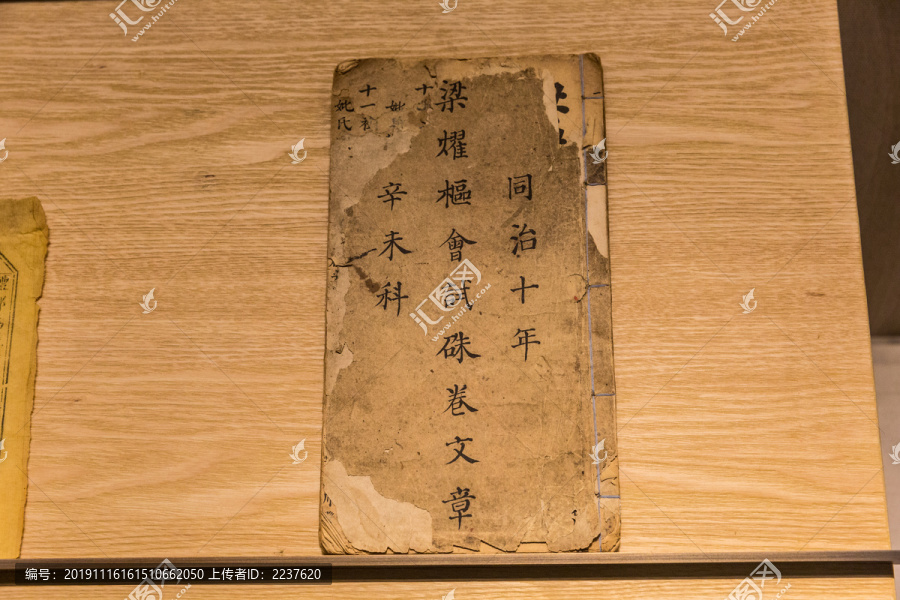 同治十年
梁燿樞會試硃卷文章
辛未科
姚氏
汇图网
www.huitu.com
编号：20191116161510662050 上传者ID：2237620